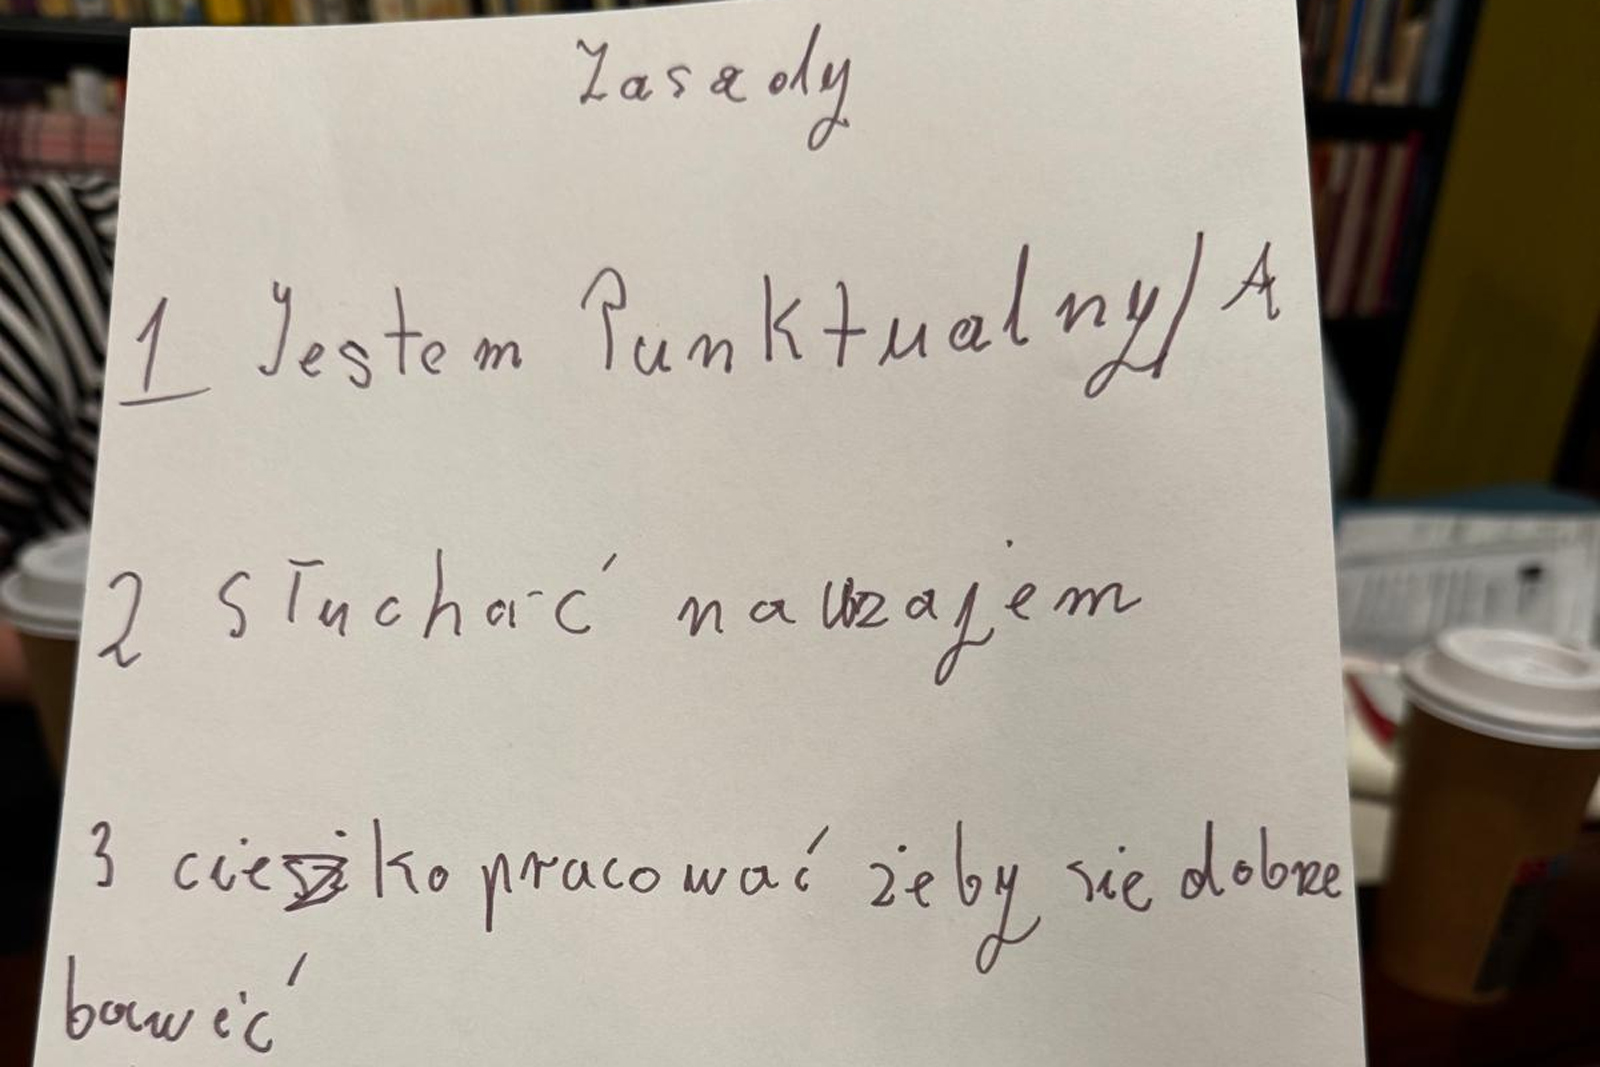 Zasady
1 Jestem Punktualny/A
2 Słuchać nawzajem
3 ciężko pracować żeby się dobrze
bawić